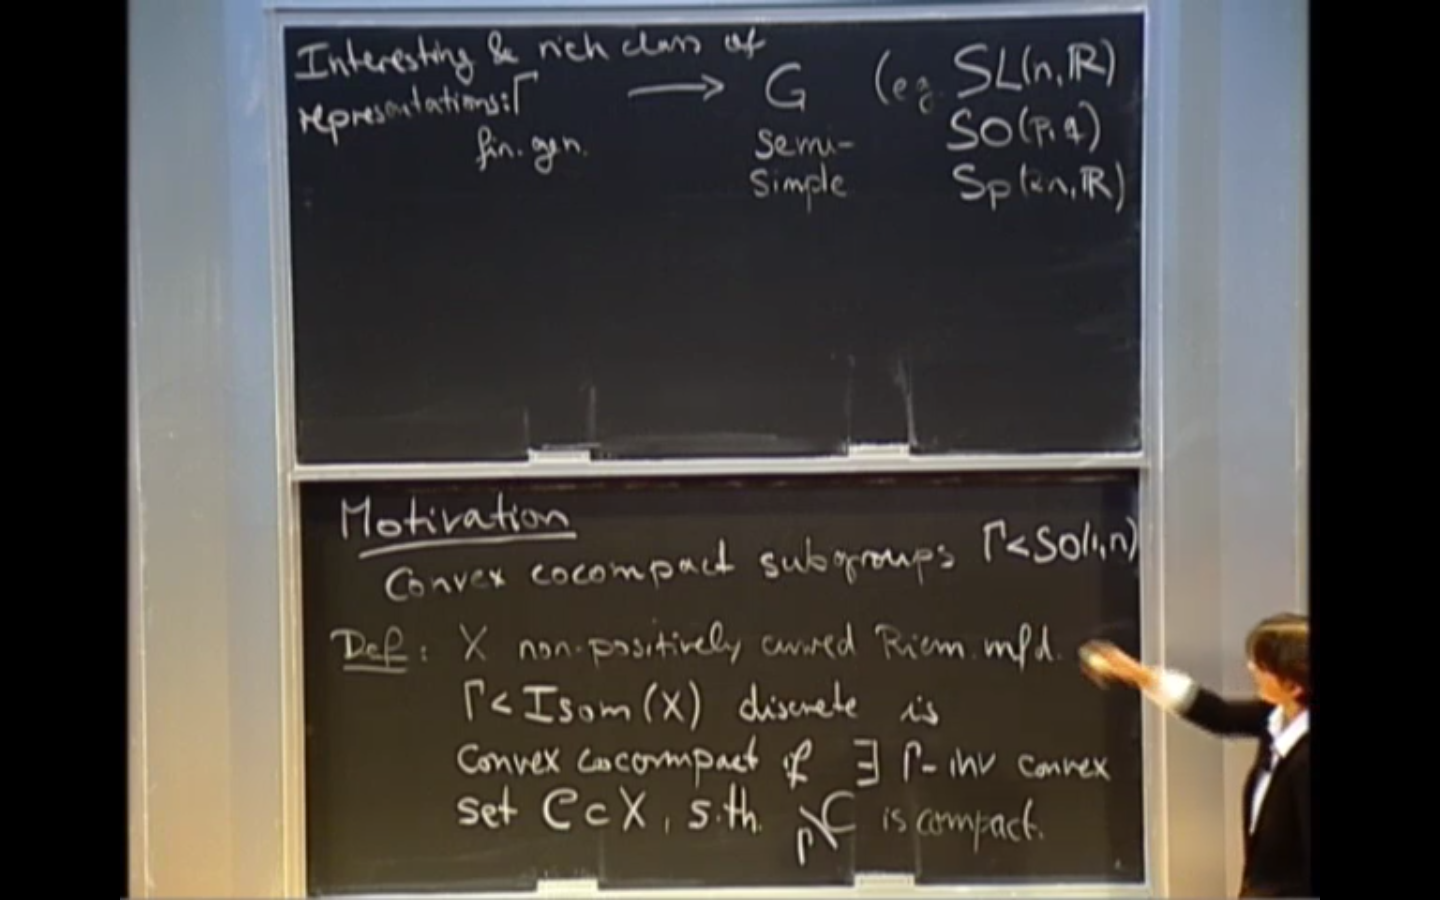 Interesting & rich class of
representations: Γ → G (eg. SL(n, ℝ)
fin. gen. semi- SO(p, q)
simple Sp(2n, ℝ)
Motivation
Convex cocompact subgroups Γ < SO(1, n)
Def: X non-positively curved Riem. mfd.
Γ < Isom(X) discrete is
Convex cocompact if ∃ Γ-inv convex
set C ⊂ X, s.th. Γ\C is compact.